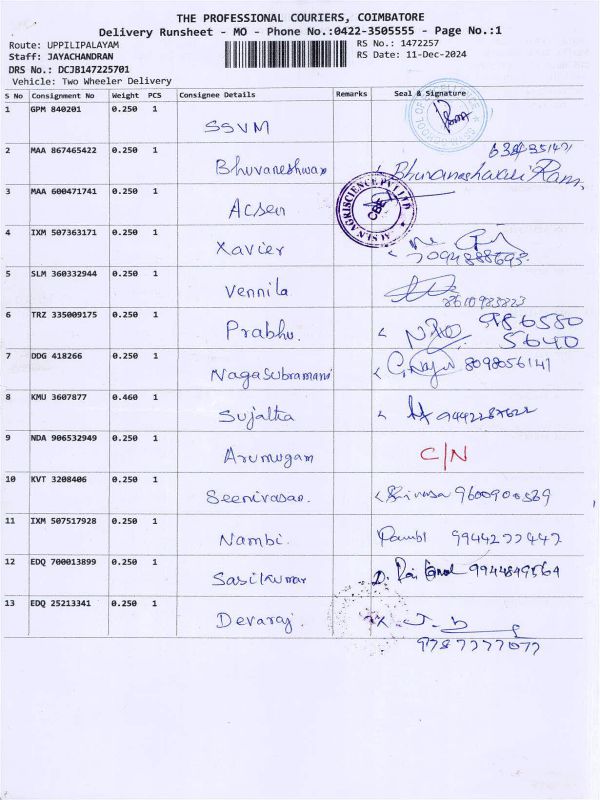 THE PROFESSIONAL COURIERS, COIMBATORE
Delivery Runsheet - MO - Phone No.:0422-3505555 - Page No.:1
Route: UPPILIPALAYAM RS No.: 1472257
Staff: JAYACHANDRAN RS Date: 11-Dec-2024
DRS No.: DCJB147225701
Vehicle: Two Wheeler Delivery
S No Consignment No Weight PCS Consignee Details Remarks Seal & Signature
1 GPM 840201 0.250 1 SSVM
2 MAA 867465422 0.250 1 Bhuvaneshwar
3 MAA 600471741 0.250 1 Acsen
4 IXM 507363171 0.250 1 Xavier
5 SLM 360332944 0.250 1 Vennila 8610985823
6 TRZ 335009175 0.250 1 Prabhu. 986580
5640
7 DDG 418266 0.250 1 Nagasubramani 8098056141
8 KMU 3607877 0.460 1 Sujatha
9 NDA 906532949 0.250 1 Arumugam C/N
10 KVT 3208406 0.250 1 Seenivasan. 9600900539
11 IXM 507517928 0.250 1 Nambi. 9944277447
12 EDQ 700013899 0.250 1 Sasikumar 9944849564
13 EDQ 25213341 0.250 1 Devaraj.
9787777077